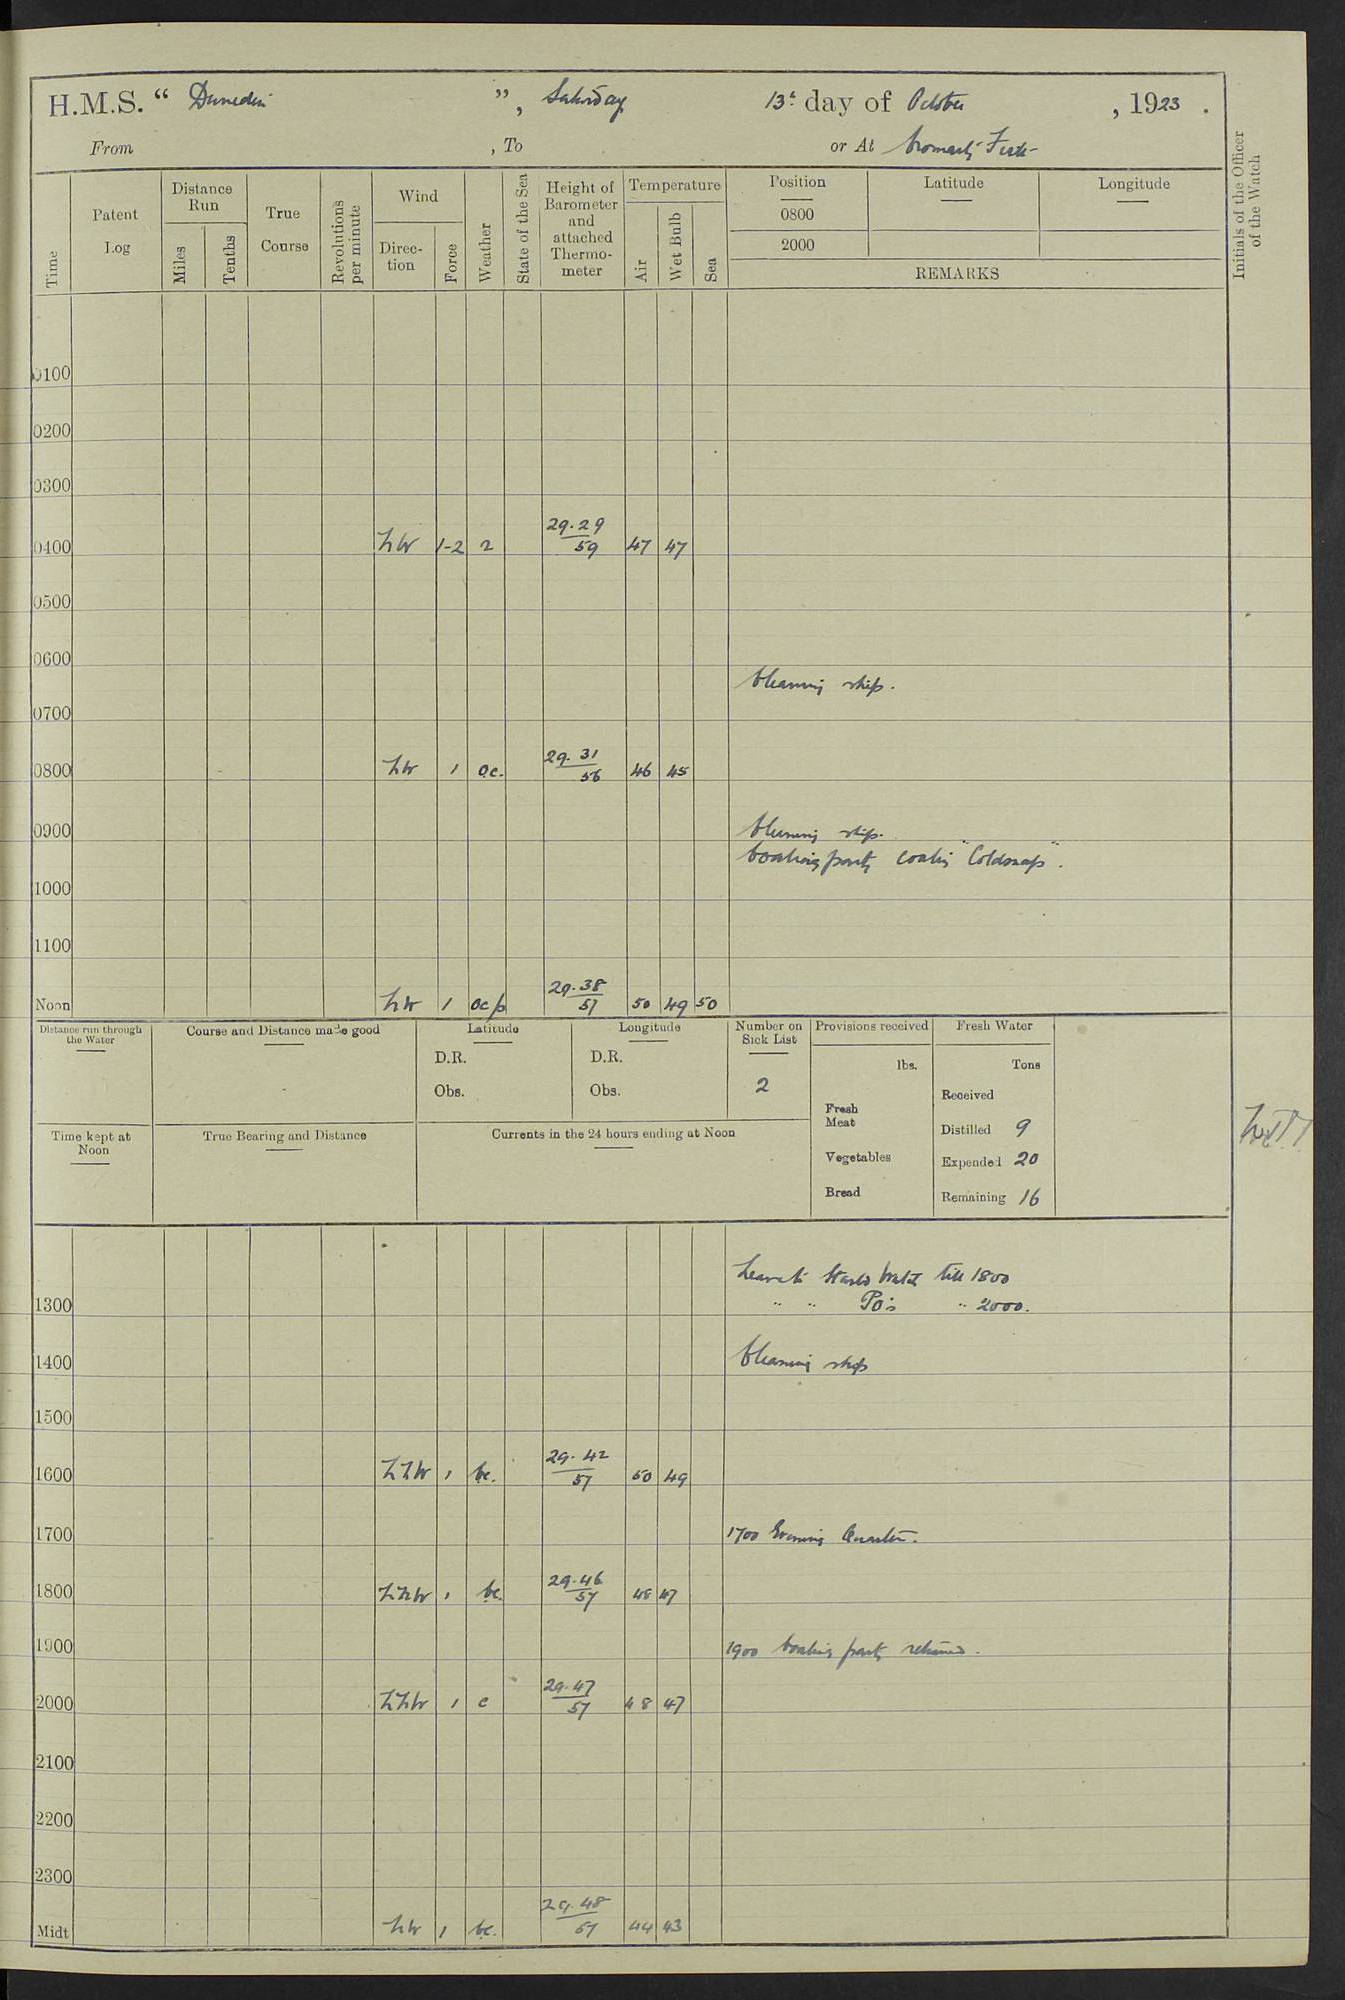 H.M.S. “ Dunedin ”, Saturday 13th day of October , 1923 .
From , To or At Cromarty Firth
Time Patent Log Distance Run Miles Tenths True Course Revolutions per minute Wind Direc-tion Force Weather State of the Sea Height of Barometer and attached Thermo-meter Temperature Air Wet Bulb Sea
Position Latitude Longitude
0800
2000
REMARKS
Initials of the Officer of the Watch
0100
0200
0300
0400 NW 1-2 2 29.29 59 47 47
0500
0600
Cleaning ship.
0700
0800 NW 1 oc. 29.31 56 46 45
0900 Cleaning ship.
Coaling party coaling "Coldsnap".
1000
1100
Noon NW 1 ocp 29.38 57 50 49 50
Distance run through the Water Course and Distance made good Latitude Longitude Number on Sick List Provisions received Fresh Water
D.R. D.R. lbs. Tons
Obs. Obs. 2 Received
Fresh Meat Distilled 9
Time kept at Noon True Bearing and Distance Currents in the 24 hours ending at Noon
Vegetables Expended 20
Bread Remaining 16
Leave to Starbd Watch till 1800
1300 " " POs " 2000.
1400 Cleaning ship
1500
1600 NNW 1 bc. 29.42 57 50 49
1700 1700 Evening Quarters.
1800 NNW 1 bc. 29.46 57 48 47
1900 1900 Coaling party returned.
2000 NNW 1 c 29.47 57 48 47
2100
2200
2300
Midt NW 1 bc. 29.48 57 44 43